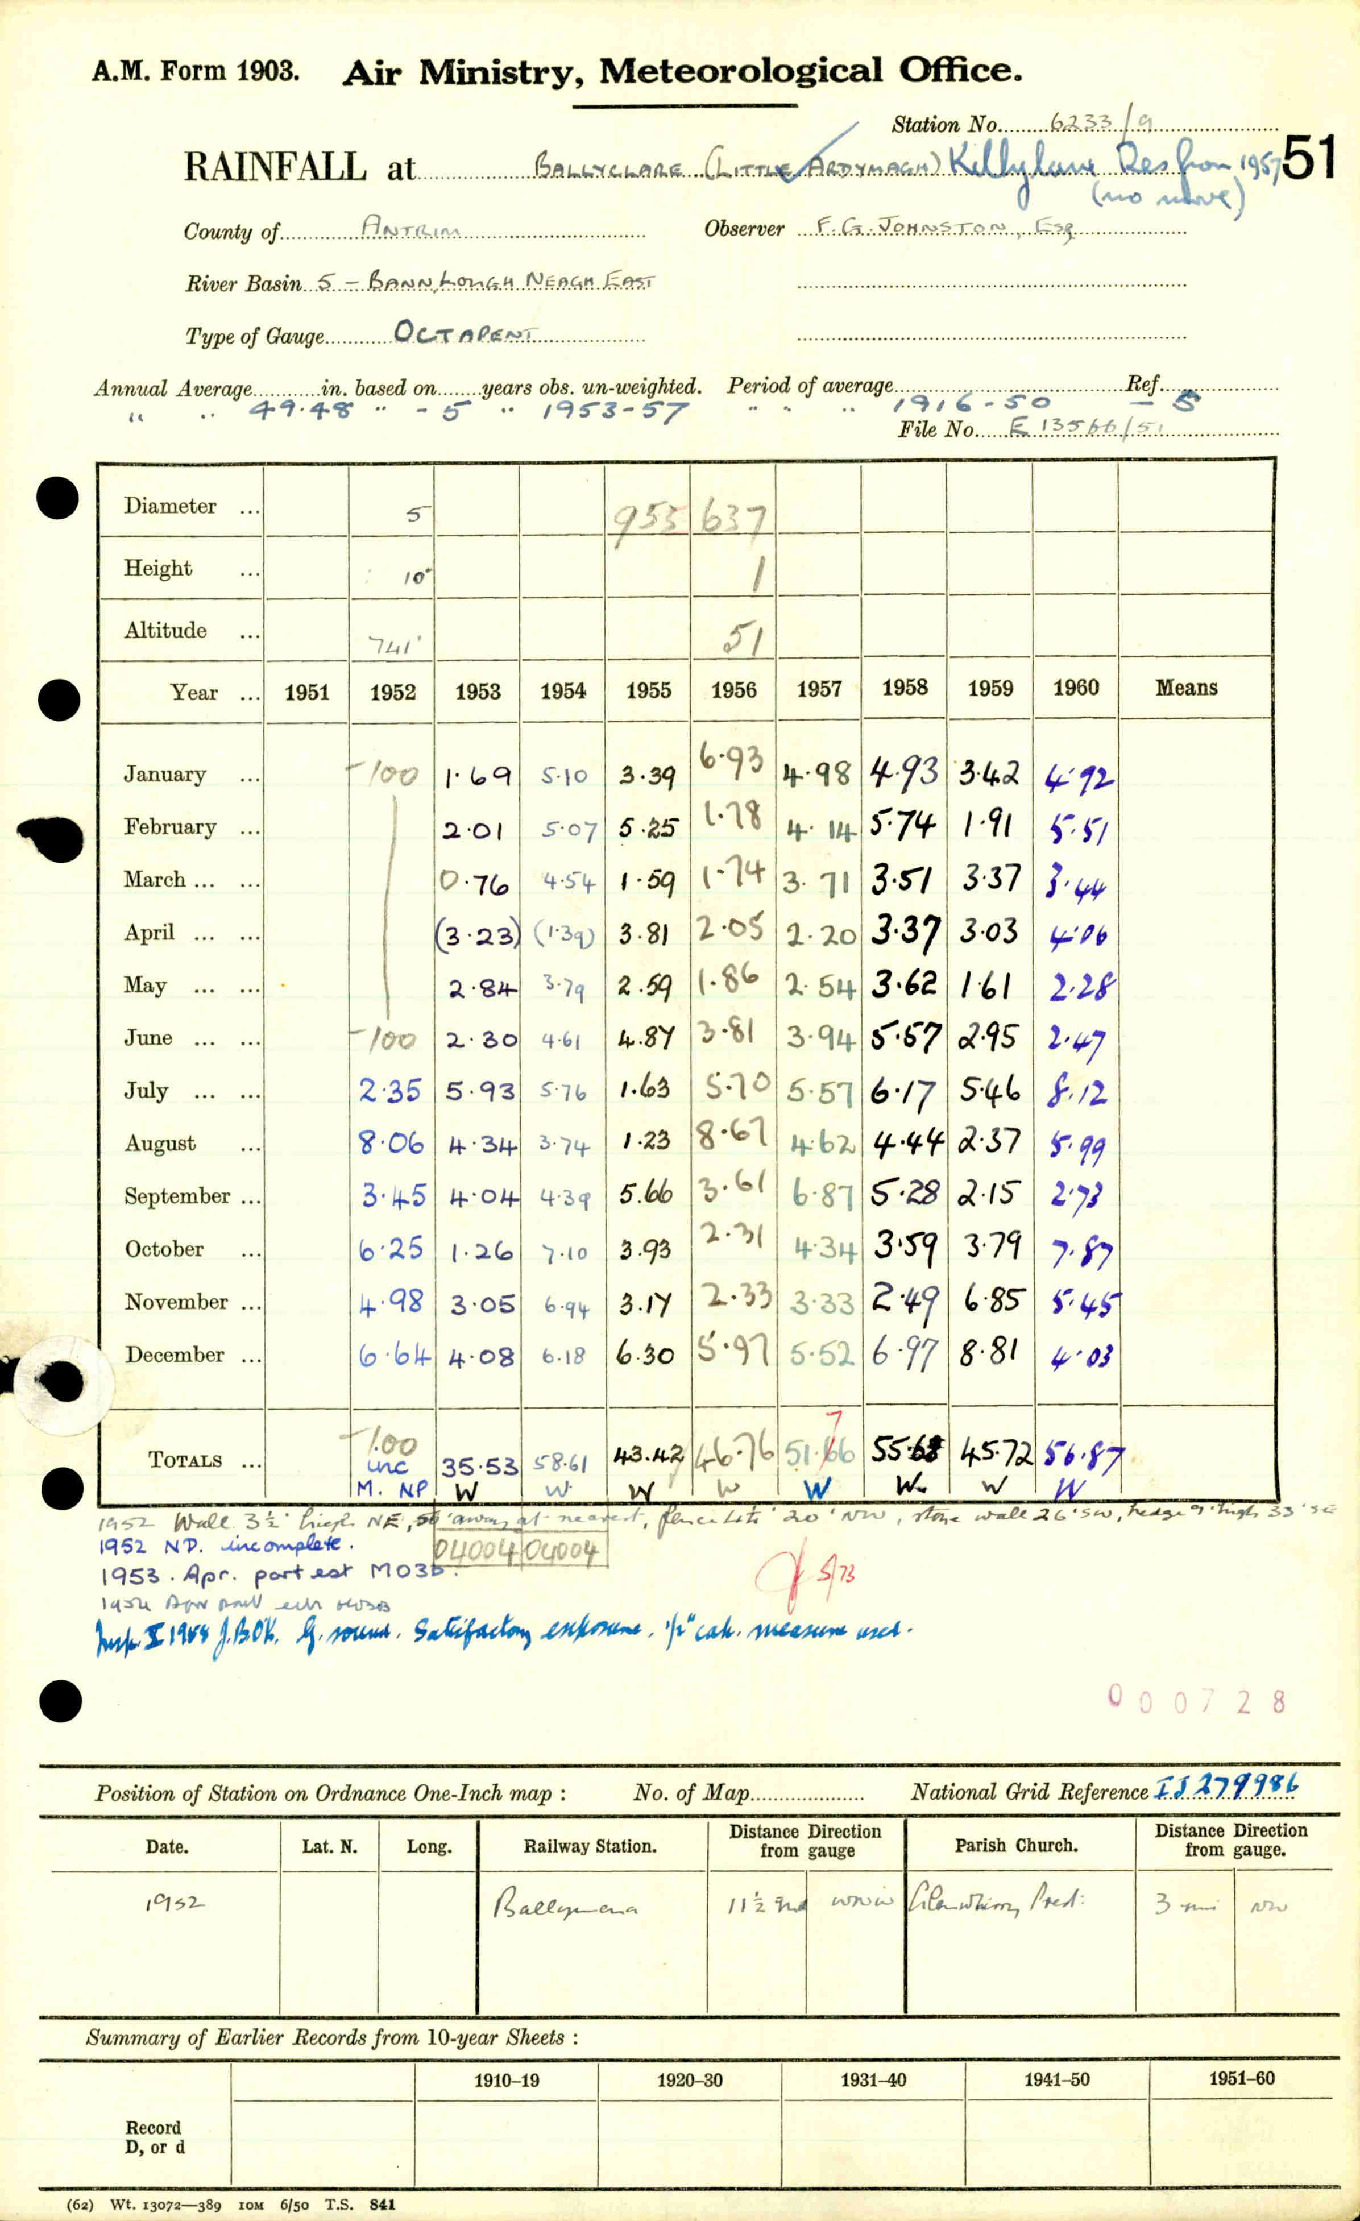 A.M. Form 1903. Air Ministry, Meteorological Office.
Station No. 6233/9
RAINFALL at BALLYCLARE (LITTLE ARDYMAGH) Killylane Res from 1957 51
(no move)
County of ANTRIM Observer F. G. JOHNSTON, Esq
River Basin 5 – BANN, LOUGH NEAGH EAST
Type of Gauge OCTAPENT
Annual Average in. based on years obs. un-weighted. Period of average Ref.
" " 49.48 " - 5 " 1953-57 " " " 1916-50 - 5
File No. E 13566/51
Diameter ... 5 955 637
Height ... 10" 1
Altitude ... 741' 51
Year ... 1951 1952 1953 1954 1955 1956 1957 1958 1959 1960 Means
January ... -100 1.69 5.10 3.39 6.93 4.98 4.93 3.42 4.92
February ... 2.01 5.07 5.25 1.78 4.14 5.74 1.91 5.51
March ... ... 0.76 4.54 1.59 1.74 3.71 3.51 3.37 3.44
April ... ... (3.23) (1.39) 3.81 2.05 2.20 3.37 3.03 4.06
May ... ... 2.84 3.79 2.59 1.86 2.54 3.62 1.61 2.28
June ... ... -100 2.30 4.61 4.87 3.81 3.94 5.57 2.95 2.47
July ... ... 2.35 5.93 5.76 1.63 5.70 5.57 6.17 5.46 8.12
August ... 8.06 4.34 3.74 1.23 8.67 4.62 4.44 2.37 5.99
September ... 3.45 4.04 4.39 5.66 3.61 6.87 5.28 2.15 2.73
October ... 6.25 1.26 7.10 3.93 2.31 4.34 3.59 3.79 7.87
November ... 4.98 3.05 6.94 3.17 2.33 3.33 2.49 6.85 5.45
December ... 6.64 4.08 6.18 6.30 5.97 5.52 6.97 8.81 4.03
7
TOTALS ... -1.00 inc 35.53 58.61 43.42 46.76 51.66 55.68 45.72 56.87
M. NP W W W W W W W W
1952 Wall 3½' high NE, 50' away at nearest, fence 20' NW, stone wall 26' SW, hedge 9' high 33' SE
1952 ND. incomplete. 04004 04004
1953. Apr. part est MO3b. 5/73
1954 Apr part est MO3b
Insp. X 1958 J.B.OK. G. sound. Satisfactory exposure. ½" cah. measure used.
000728
Position of Station on Ordnance One-Inch map : No. of Map National Grid Reference IJ 279986
Date. Lat. N. Long. Railway Station. Distance from Direction gauge Parish Church. Distance from Direction gauge.
1952 Ballymena 11½ WNW Glenwhirry Presb: 3 mi NW
Summary of Earlier Records from 10-year Sheets :
1910–19 1920–30 1931–40 1941–50 1951–60
Record
D, or d
(62) Wt. 13072—389 10M 6/50 T.S. 841